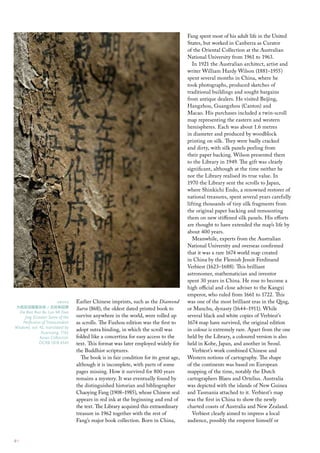 Fang spent most of his adult life in the United
States, but worked in Canberra as Curator
of the Oriental Collection at the Australian
National University from 1961 to 1963.
In 1921 the Australian architect, artist and
writer William Hardy Wilson (1881–1955)
spent several months in China, where he
took photographs, produced sketches of
traditional buildings and sought bargains
from antique dealers. He visited Beijing,
Hangzhou, Guangzhou (Canton) and
Macao. His purchases included a twin-scroll
map representing the eastern and western
hemispheres. Each was about 1.6 metres
in diameter and produced by woodblock
printing on silk. They were badly cracked
and dirty, with silk panels peeling from
their paper backing. Wilson presented them
to the Library in 1949. The gift was clearly
significant, although at the time neither he
nor the Library realised its true value. In
1970 the Library sent the scrolls to Japan,
where Shiokichi Endo, a renowned restorer of
national treasures, spent several years carefully
lifting thousands of tiny silk fragments from
the original paper backing and remounting
them on new stiffened silk panels. His efforts
are thought to have extended the map's life by
about 400 years.
Meanwhile, experts from the Australian
National University and overseas confirmed
that it was a rare 1674 world map created
in China by the Flemish Jesuit Ferdinand
Verbiest (1623–1688). This brilliant
astronomer, mathematician and inventor
spent 30 years in China. He rose to become a
high official and close adviser to the Kangxi
emperor, who ruled from 1661 to 1722. This
was one of the most brilliant eras in the Qing,
or Manchu, dynasty (1644–1911). While
several black and white copies of Verbiest's
1674 map have survived, the original edition
in colour is extremely rare. Apart from the one
held by the Library, a coloured version is also
held in Kobe, Japan, and another in Seoul.
Verbiest's work combined Chinese and
Western notions of cartography. The shape
of the continents was based on European
mapping of the time, notably the Dutch
cartographers Blaeu and Ortelius. Australia
was depicted with the islands of New Guinea
and Tasmania attached to it. Verbiest's map
was the first in China to show the newly
charted coasts of Australia and New Zealand.
Verbiest clearly aimed to impress a local
audience, possibly the emperor himself or
Perfection of Transcendent
Earlier Chinese imprints, such as the Diamond
Sutra (868), the oldest dated printed book to
survive anywhere in the world, were rolled up
as scrolls. The Fuzhou edition was the first to
adopt sutra binding, in which the scroll was
folded like a concertina for easy access to the
text. This format was later employed widely for
the Buddhist scriptures.
The book is in fair condition for its great age,
although it is incomplete, with parts of some
pages missing. How it survived for 800 years
remains a mystery. It was eventually found by
the distinguished historian and bibliographer
Chaoying Fang (1908–1985), whose Chinese seal
appears in red ink at the beginning and end of
the text. The Library acquired this extraordinary
treasure in 1962 together with the rest of
Fang's major book collection. Born in China,